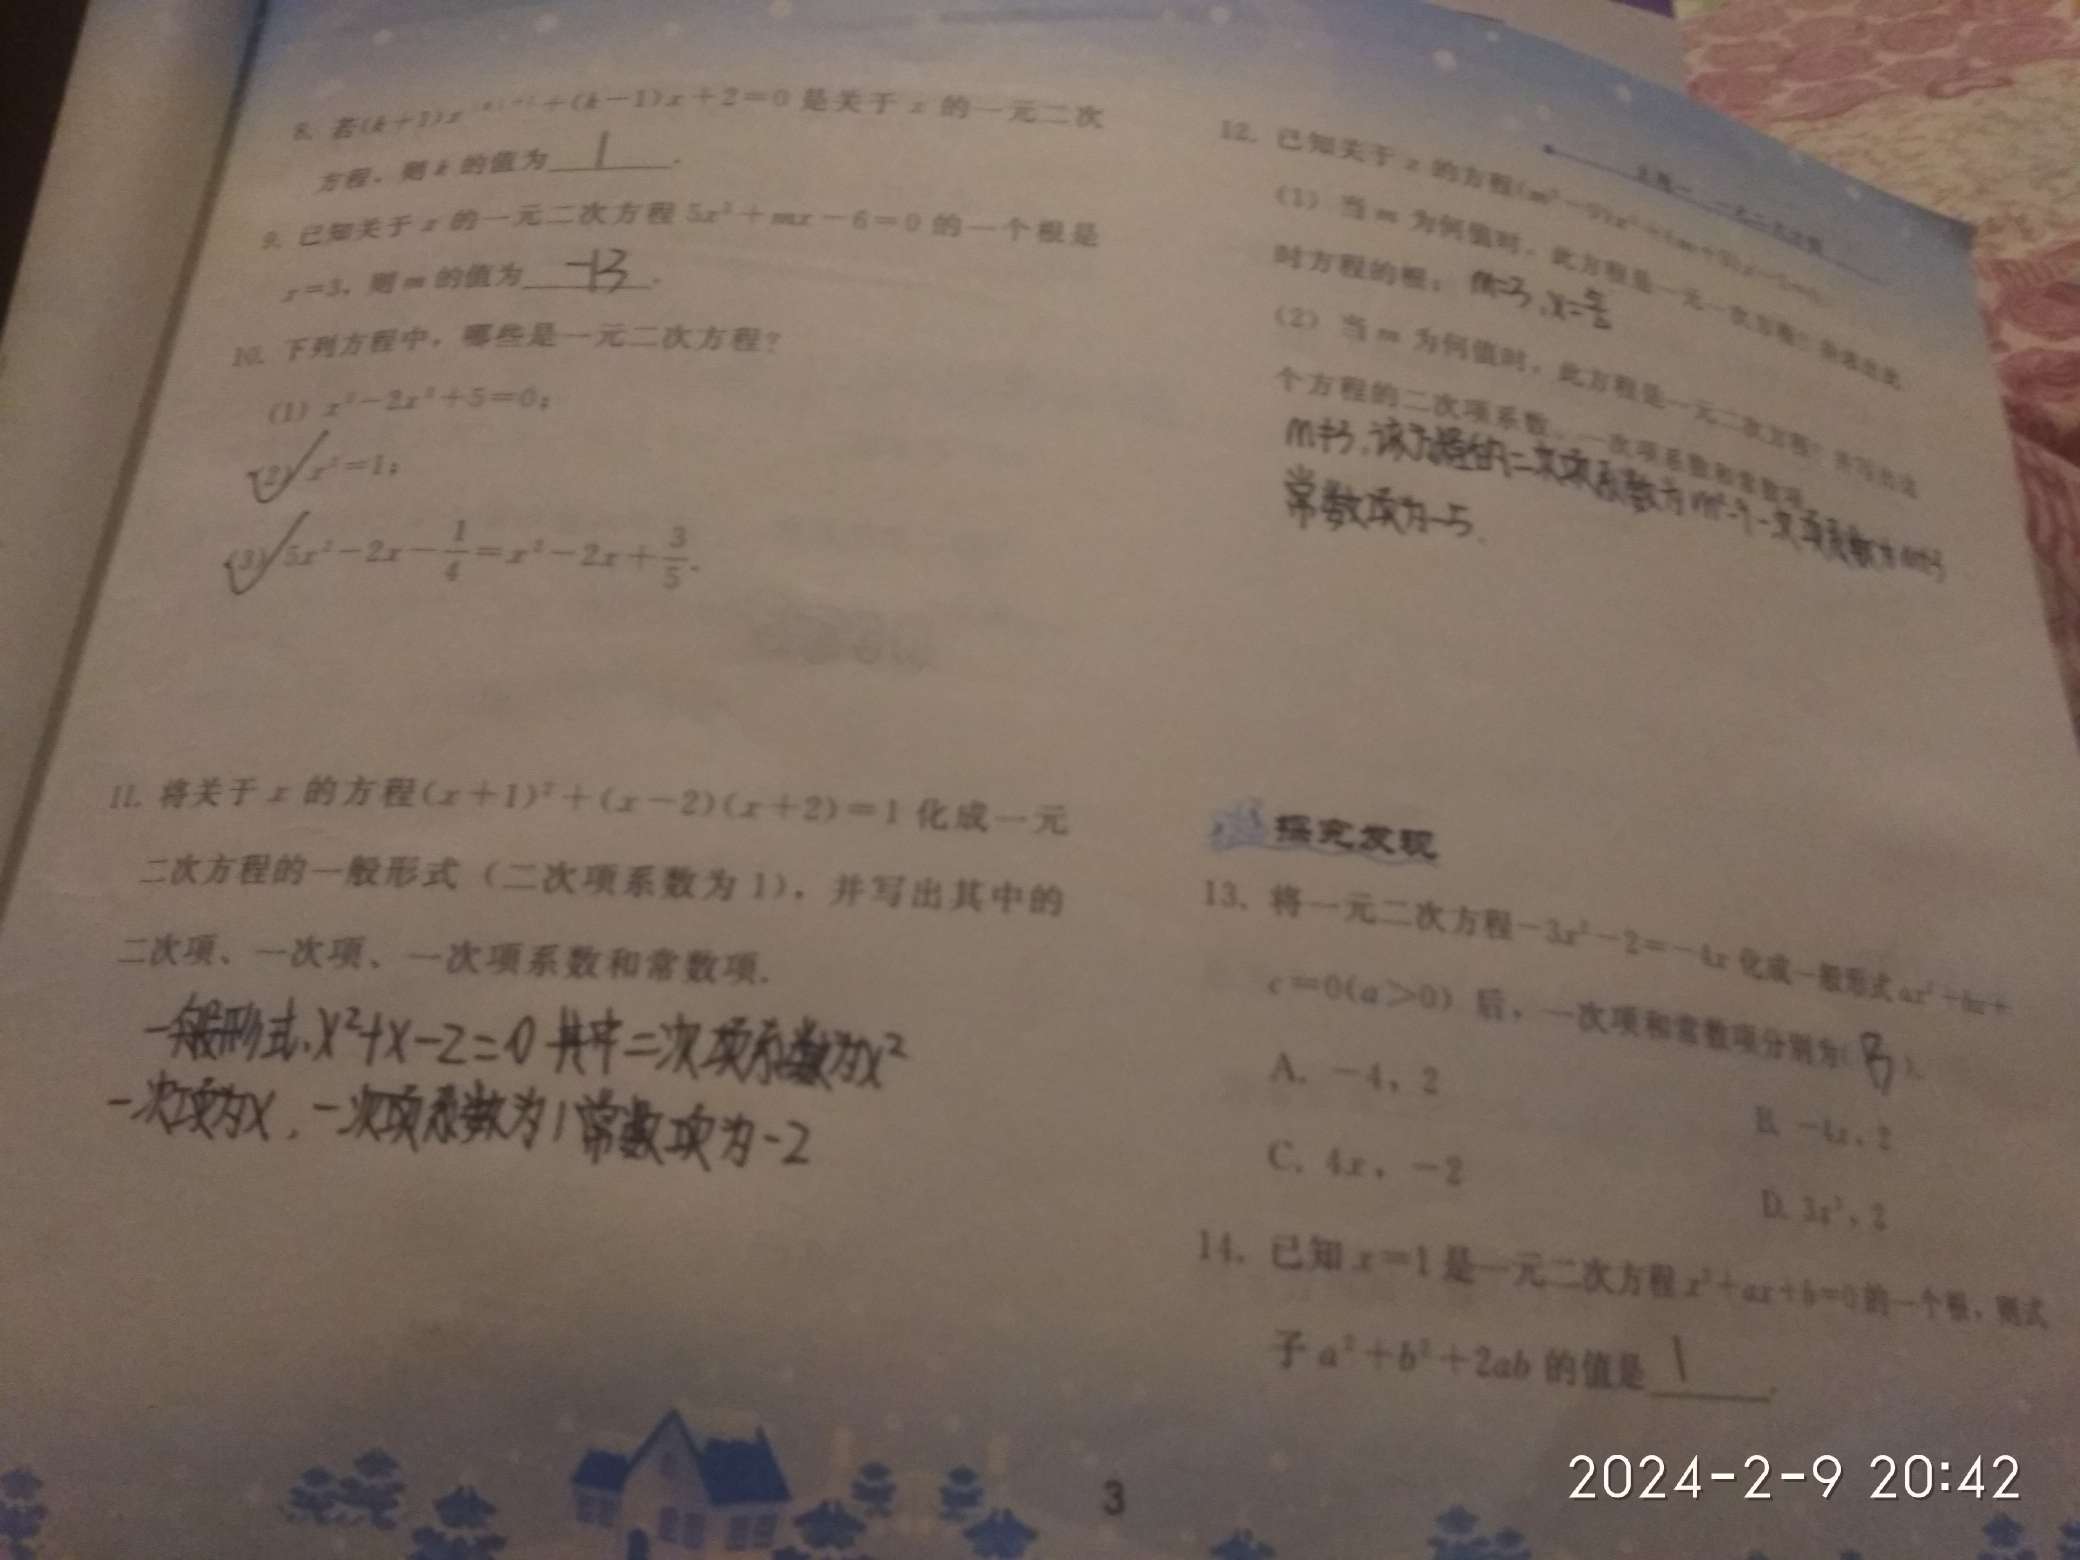 8. 若(k+1)x +(k-1)x+2=0 是关于 x 的一元二次
方程，则 k 的值为 1 .
9. 已知关于 x 的一元二次方程 5x²+mx-6=0 的一个根是
x=3，则 m 的值为 -13 .
10. 下列方程中，哪些是一元二次方程？
(1) -2x²+5=0；
(2) x²=1；
(3) 5x²-2x-1/4=x²-2x+3/5.
11. 将关于 x 的方程(x+1)²+(x-2)(x+2)=1 化成一元
二次方程的一般形式（二次项系数为 1），并写出其中的
二次项、一次项、一次项系数和常数项.
一般形式 x²+x-2=0 其中二次项系数为x²
一次项为x，一次项系数为1常数项为-2
12. 已知关于 x 的方程(m²-9)x²+(m+3)x-5=0.
(1) 当 m 为何值时，此方程是一元一次方程？并求出此
时方程的根； m=3,x=
(2) 当 m 为何值时，此方程是一元二次方程？并写出这
个方程的二次项系数、一次项系数和常数项.
该方程的二次项系数为m²-9一次项系数为m+3
常数项为-5.
探究发现
13. 将一元二次方程-3x²-2=-4x 化成一般形式 ax²+bx+
c=0(a>0) 后，一次项和常数项分别为( B ).
A. -4，2
B. -4x，2
C. 4x，-2
D. 3x²，2
14. 已知 x=1 是一元二次方程 x²+ax+b=0 的一个根，则式
子 a²+b²+2ab 的值是 1 .
3
2024-2-9 20:42